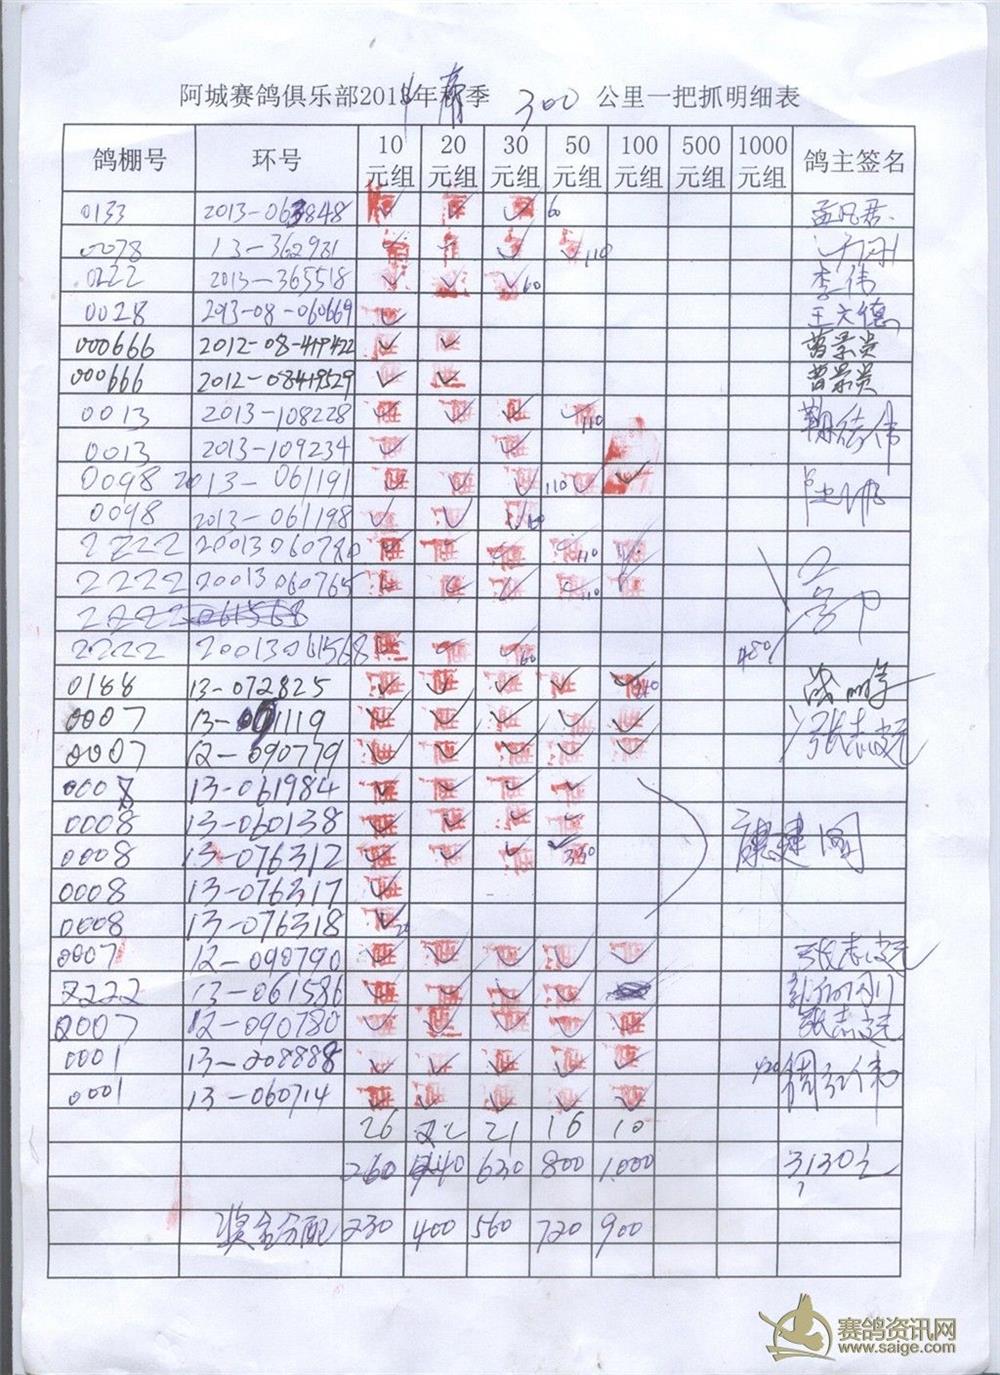 阿城赛鸽俱乐部2014年春季 300 公里一把抓明细表
鸽棚号 环号 10元组 20元组 30元组 50元组 100元组 500元组 1000元组 鸽主签名
0133 2013-063848 60 孟凡君
0078 13-362931 110
0222 2013-365518 60 李伟
0028 2013-08-060669 王文德
000666 2012-08-419422 曹景贵
000666 2012-08419529 曹景贵
0013 2013-108228 110
0013 2013-109234
0098 2013-061191 110
0098 2013-061198 60
2222 20013060780 110
2222 20013060765 110
2222 061568
2222 20013061568 60 480
0188 13-072825
0007 13-071119 张志
0007 12-090779
0008 13-061984
0008 13-060138 康建国
0008 13-076312 350
0008 13-076317
0008 13-076318
0007 12-090790 张志
2222 13-061586
0007 12-090780 张志
0001 13-208888 420
0001 13-060714
26 22 21 16 10
260 440 630 800 1000 3130元
奖金分配 230 400 560 720 900
赛鸽资讯网
www.saige.com